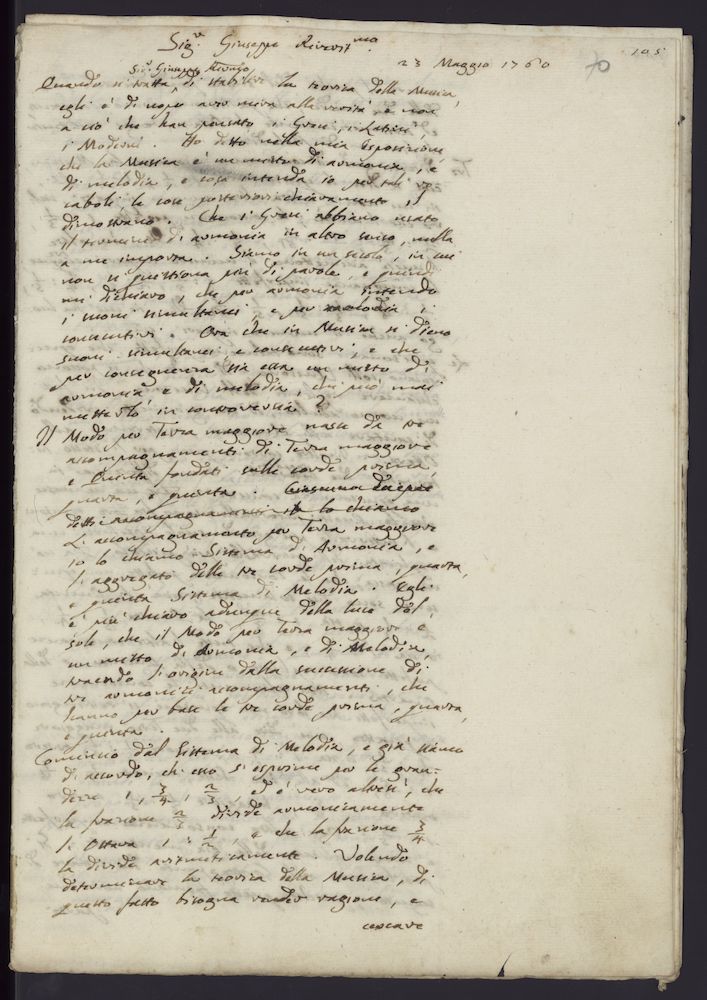 Sig.r Giuseppe Riverit.mo
105
23 Maggio 1760
Sig. Giuseppe
Quando si tratta di stabilire la teorica della Musica,
egli è di uopo aver mira alla verità, e non
a ciò che han pensato i Greci, i Latini,
i Moderni. Ho detto nella mia Esposizione
che la Musica è un misto di armonia, e
di melodia, e cosa intenda io per tali vo-
caboli, le cose posteriori chiaramente il
dimostrano. Che i Greci abbiano usato
il termine di armonia in altro senso, nulla
a me importa. Siamo in un secolo, in cui
non si questiona più di parole, e quindi
mi dichiaro, che per armonia intendo
i suoni simultanei, e per melodia i
consecutivi. Ora che in Musica si dieno
suoni simultanei, e consecutivi, e che
per conseguenza sia essa un misto di
armonia, e di melodia, chi può mai
metterlo in controversia?
Il Modo per Terza maggiore nasce da tre
accompagnamenti di Terza maggiore
e Quinta fondati sulle corde prima,
quarta, e quinta.
detti accompagnamenti io lo chiamo
L'accompagnamento per Terza maggiore
io lo chiamo Sistema di Armonia, e
l'aggregato delle tre corde prima, quarta,
e quinta Sistema di Melodia. Egli
è più chiaro adunque della luce del
sole, che il Modo per Terza maggiore è
un misto di Armonia, e di Melodia,
traendo l'origine dalla successione di
tre armonici accompagnamenti, che
hanno per base le tre corde prima, quarta,
e quinta.
Comincio dal Sistema di Melodia, e già siamo
di accordo, ch'esso si esprime per le gran-
dezze 1, 3/4, 2/3, ed è vero altresì, che
la frazione 2/3 divide armonicamente
l'Ottava 1 : 1/2, e che la frazione 3/4
la divide aritmeticamente. Volendo
determinare la teorica della Musica, di
questo fatto bisogna render ragione, e
cercare